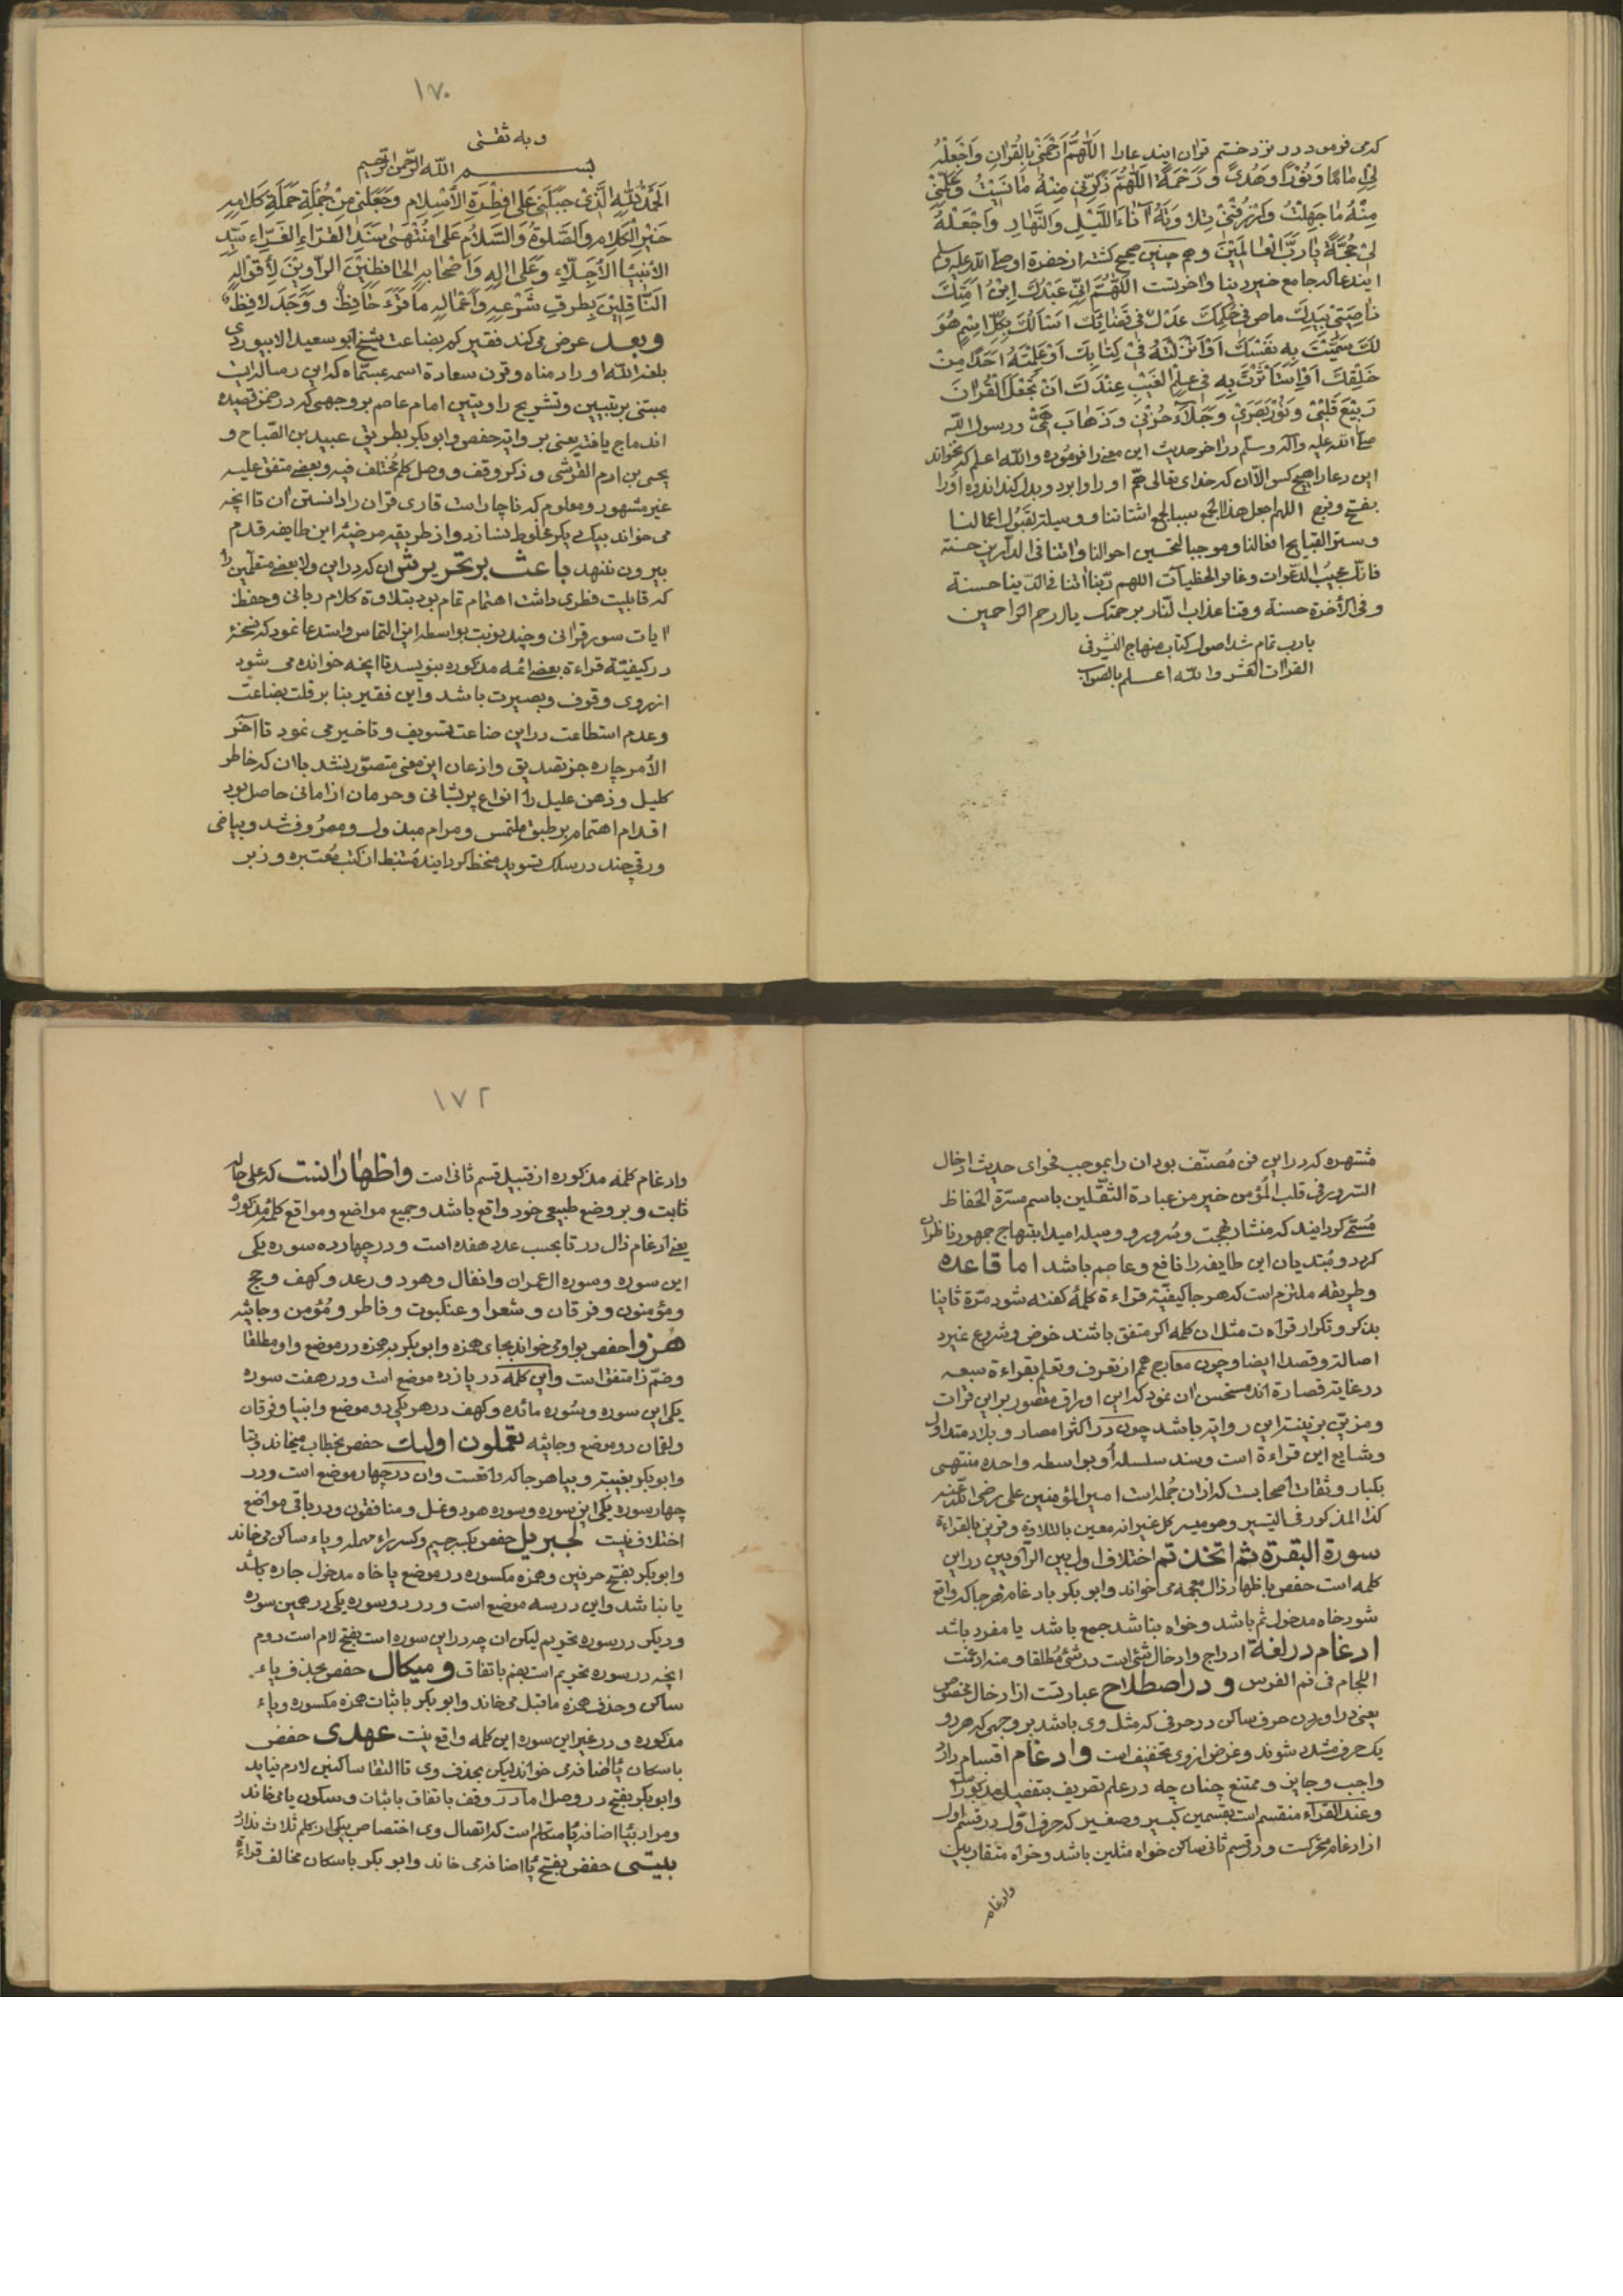 کدمی فرمود در نزد ختم قران ایند عارا اللّهُمَّ ارْحَمْنِي بِالْقُرْانِ وَاجْعَلْهُ
لِي اِمَامًا وَنُوْرًا وَهُدًى وَرَحْمَةً اللّهُمَّ ذَكِّرْنِي مِنْهُ مَا نَسِيْتُ وَعَلِّمْنِي
مِنْهُ مَا جَهِلْتُ وَارْزُقْنِي تِلَاوَتَهُ آنَاءَ اللَّيْلِ وَالنَّهَارِ وَاجْعَلْهُ
لِي حُجَّةً يَا رَبَّ الْعَالَمِيْنَ وهم چنین صحیح کشته از حضرة او صلی الله علیه وسلم
ایند عا که جامع خیر دینا واخرتست اللّهُمَّ اِنِّي عَبْدُكَ اِبْنُ اَمَتِكَ
نَاصِيَتِي بِيَدِكَ ماض فِي حُكْمِكَ عَدْلٌ فِي قَضَائِكَ اَسْاَلُكَ بِكُلِّ اسْمٍ هُوَ
لَكَ سَمَّيْتَ بِهِ نَفْسَكَ اَوْ اَنْزَلْتَهُ فِي كِتَابِكَ اَوْ عَلَّمْتَهُ اَحَدًا مِنْ
خَلْقِكَ اَوِ اسْتَأْثَرْتَ بِهِ فِي عِلْمِ الْغَيْبِ عِنْدَكَ اَنْ تَجْعَلَ الْقُرْانَ
رَبِيْعَ قَلْبِي وَنُوْرَ بَصَرِي وَجَلَاءَ حُزْنِي وَذَهَابَ هَمِّي ورسول الله
صلی الله علیه وآله وسلم در اخر حدیث این معنی را فرموده والله اعلم که نخواند
این دعا را هیچ کس الّا ان که خدای تعالی همّ او را وا برد و بدل کند اندوه او را
بفتح وفرح اللهم اجعل هذا الجمع سببا لجمع اشتاتنا ووسیلة لقبول اعمالنا
وستر القبایح افعالنا وموجبا لتحسین احوالنا واتنا فی الدّارین حسنة
فانّك مجیب الدّعوات وغافر الخطیآت اللهم ربّنا اتنا فی الدّینا حسنة
وفی الأخرة حسنة وقنا عذاب النّار برحمتک یا ارحم الرّاحمین
یا رب تمام شد اصول کتاب منهاج النشر فی
القراات العشر والله اعلم بالصواب
١٧٠
وبه ثقتی
بسم الله الرّحمن الرّحیم
اَلْحَمْدُ لِلّهِ الَّذِي جَبَلَنِي عَلَى فِطْرَةِ الْاِسْلَامِ وَجَعَلَنِي مِنْ جُمْلَةِ حَمَلَةِ كَلَامِهِ
خَيْرِ الْكَلَامِ وَالصَّلٰوةُ وَالسَّلَامُ عَلَى مُنْتَهٰى سَنَدِ الْقُرَّاءِ الْغَرَّاءِ سَيِّدِ
الْاَنْبِيَاءِ الْأَجِلَّاءِ وَعَلَى اٰلِهِ وَاَصْحَابِهِ الْحَافِظِيْنَ الرَّاوِيْنَ لِأَقْوَالِهِ
النَّاقِلِيْنَ بِطُرُقِ شَرْعِهِ وَاَعْمَالِهِ مَا قَرَءَ حَافِظٌ وَوَجَدَ لَافِظٌ
وبعد عرض می کند فقیر کم بضاعت شیخ ابو سعید الابیوردی
بلغه الله اوراد مناه وقرن سعادة اسمه عبستماه که این رساله ایست
مبتنی بر تبیین وتشریح راویتین امام عاصم بر وجهی که در ضمن قصیده
اندماج یافته یعنی بروایة حفص وابو بکر بطریق عبید بن الصّباح و
یحیی بن ادم القرشی و ذکر وقف و وصل کلم مختلف فیه وبعضی متفق علیه
غیر مشهور ومعلوم که ناچار است قاری قران را دانستن ان تا انچه
می خواند بیک دیکر مخلوط نسازد واز طریقه مرضیّه این طایفه قدم
بیرون ننهد باعث بر تحریرش ان که در این ولا بعضی متعلّمین را
که قابلیت فطری داشت اهتمام تمام بود بتلاوة کلام ربانی وحفظ
ایات سور قرانی وچند نوبت بواسطه این التماس واستدعا نمود که نسخهٔ
در کیفیّة قراءة بعضی ائمه مذکوره بنویسد تا انچه خوانده می شود
از روی وقوف وبصیرت باشد واین فقیر بنا بر قلت بضاعت
وعدم استطاعت در این صناعت تسویف وتاخیر می نمود تا آخر
الأمر چاره جز تصدیق واذعان این معنی متصوّر نشد با ان که خاطر
کلیل وذهن علیل را انواع پریشانی وحرمان از امانی حاصل بود
اقدام اهتمام بر طبق ملتمس ومرام مبذول ومصروف شد وبیاض
ورقی چند در سلک تسوید منخط کردانیده مستنبط از کتب معتبره وزبر
مشتهره که در این فن مصنّف بود ان را بموجب فحوای حدیث ادخال
السّرور فی قلب المؤمن خیر من عبادة الثقلین باسم مسرّة الحفاظ
مسمّی کردانید که منشاء بهجت وسرور و وسیله امید ابتهاج جمهور ناظران
کردد ومبتدیان این طایفه را نافع وعاصم باشد اما قاعده
وطریقه ملتزم است که هر جا کیفیّة قراءة کلمهٔ کفته شود مرّة ثانیا
بذکر و تکرار قراءت مثل ان کلمه اکر متفق باشند خوض وشروع نمیرد
اصالة وقصدا ایضا وچون معارج هم از تعرف وتعلم بقراءة سبعه
در غایة قصارة اند مستحسن ان نمود که این اوراق مقصور بر این قراات
ومزیّن بزینت این روایة باشد چون در اکثر امصار وبلاد متداول
وشایع این قراءة است وسند سلسله او بواسطه واحده منتهی
بکبار وثقات اصحابست که از ان جمله است امیر المؤمنین علی رضی الله عنه
کذا المذکور فی التیسیر وهو میسر کل عسیر انه معین بالتلاوة وقرین بالقراءة
سورة البقرة ثم اتخذتم اختلاف اول بین الرّاویین در این
کلمه است حفص باظهار ذال معجمه می خواند وابو بکر بادغام هر جا که واقع
شود خاه مدخول ثم باشد وخواه بنا شد جمع باشد یا مفرد باشد
ادغام در لغة ادراج وادخال شئ است در شئ مطلقا ومنه ادغمت
اللجام فی فم الفرس و در اصطلاح عبارتست از ادخال مخصوص
یعنی در اوردن حرف ساکن در حرفی که مثل وی باشد بر وجهی که هر دو
یک حرف مشدد شوند وغرض از وی تخفیف است وادغام اقسام دارد
واجب وجایز وممتنع چنان چه در علم تصریف بتفصیل مذکور است
وعند القرّاء منقسم است بقسمین کبیر وصغیر که حرف اوّل در قسم اول
از ادغام متحرکست ودر قسم ثانی ساکن خواه مثلین باشد وخواه متقاربین
وادغام
١٧٢
وادغام کلمه مذکوره از قبیل قسم ثانی است واظهار انست که علی حاله
ثابت و بر وضع طبیعی خود واقع باشد وجمیع مواضع ومواقع کلمهٔ مذکوره
یعنی ادغام ذال در تا بحسب عدد هفده است و در چهارده سوره یکی
این سوره وسوره ال عمران وانفال وهود ورعد وکهف وحج
ومؤمنون وفرقان وشعرا وعنکبوت وفاطر ومؤمن وجاثیه
هُزُوا حفص بواو می خواند بجای همزه وابو بکر بهمزه در موضع واو مطلقا
وضمّ زا متفق است واین کلمه در یازده موضع است ودر هفت سوره
یکی این سوره وسوره مائده وکهف در هر یکی دو موضع وانبیا وفرقان
ولقمان دو موضع وجاثیه تعملون اولئک حفص بخطاب میخاند وبتا
وابو بکر بغیبة وبیا هر جا که واقعست وان در چهار موضع است ودر
چهار سوره یکی این سوره وسوره هود ونمل ومنافقون ودر باقی مواضع
اختلاف نیست لجبریل حفص بکسر جیم وکسر راء مهمله ویاء ساکن می خاند
وابو بکر بفتح حرفین وهمزه مکسوره در موضع یا خاه مدخول جاره باشد
یا نبا شد واین در سه موضع است ودر دو سوره یکی در همین سوره
ودیکر در سوره تحریم لیکن ان چه در این سوره است بفتح لام است دوم
انچه در سوره تحریم است بضم باتفاق ومیکال حفص بحذف یاء
ساکن وحذف همزه ماقبل می خاند وابو بکر باثبات همزه مکسوره ویاء
مذکوره ودر غیر این سوره این کلمه واقع نیست عهدی حفص
باسکان یٔا اضافه می خواند لیکن بحذف وی تا التقا ساکنین لازم نیاید
وابو بکر بفتح در وصل اما در وقف باتفاق باثبات وسکون یا می خاند
ومراد بیٔا اضافه یٔا متکلم است که اتصال وی اختصاص بیکی از کلم ثلاث ندارد
بیتی حفص بفتح یٔا اضافه می خاند وابو بکر باسکان مخالف قراءة